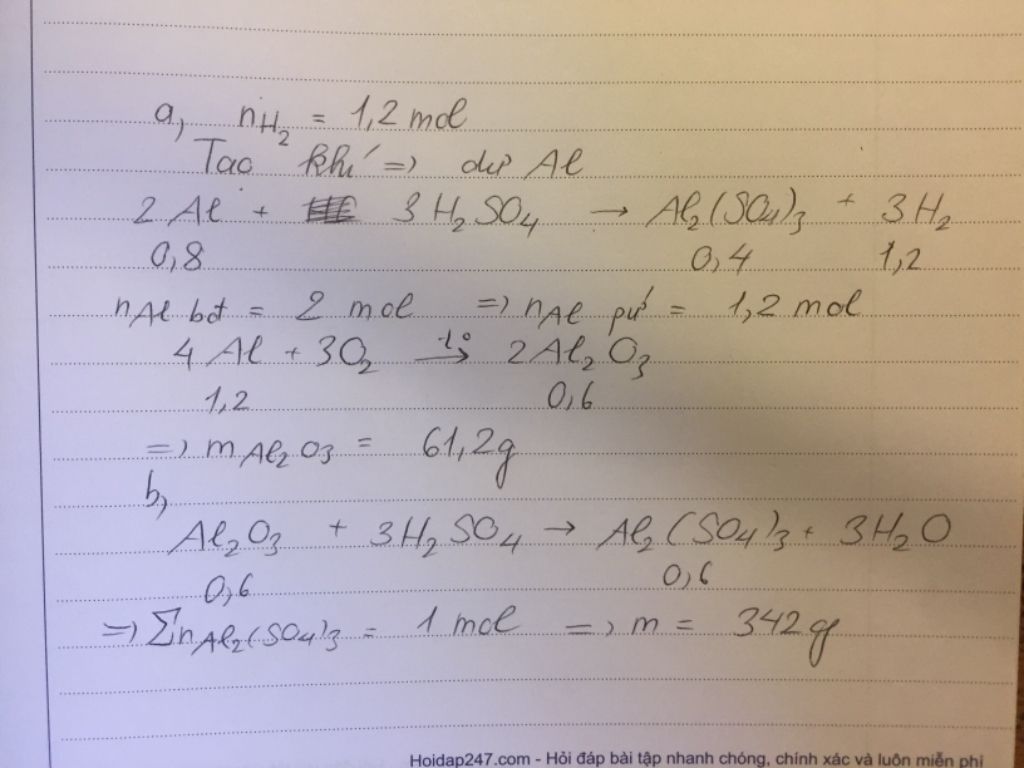 a, nH₂ = 1,2 mol
Tạo khí => dư Al
2 Al + 3 H₂SO₄ → Al₂(SO₄)₃ + 3 H₂
0,8 0,4 1,2
nAl bđ = 2 mol => nAl pứ = 1,2 mol
4 Al + 3O₂ —t°→ 2Al₂O₃
1,2 0,6
=> mAl₂O₃ = 61,2g
b,
Al₂O₃ + 3H₂SO₄ → Al₂(SO₄)₃ + 3H₂O
0,6 0,6
=> ΣnAl₂(SO₄)₃ = 1 mol => m = 342g
Hoidap247.com - Hỏi đáp bài tập nhanh chóng, chính xác và luôn miễn phí